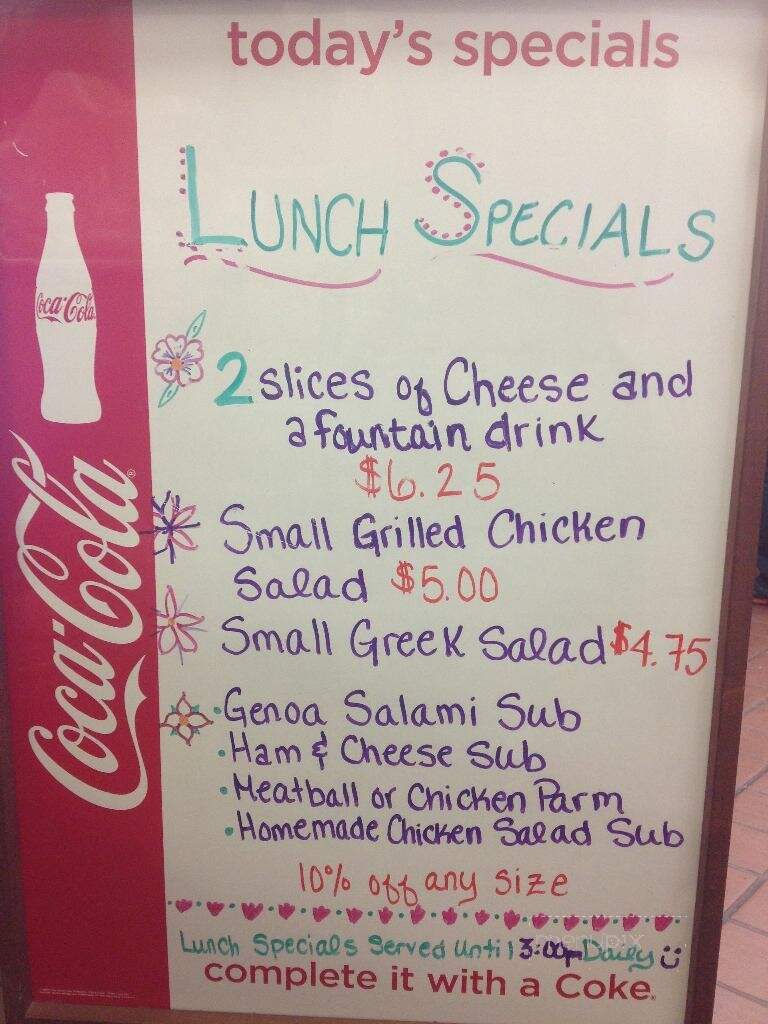 today's specials
LUNCH SPECIALS
Coca-Cola
2 slices of Cheese and
a fountain drink
$6.25
Small Grilled Chicken
Salad $5.00
Small Greek Salad $4.75
Coca-Cola
• Genoa Salami Sub
• Ham & Cheese Sub
• Meatball or Chicken Parm
• Homemade Chicken Salad Sub
10% off any size
Lunch Specials Served Until 3:00pm Daily
complete it with a Coke.